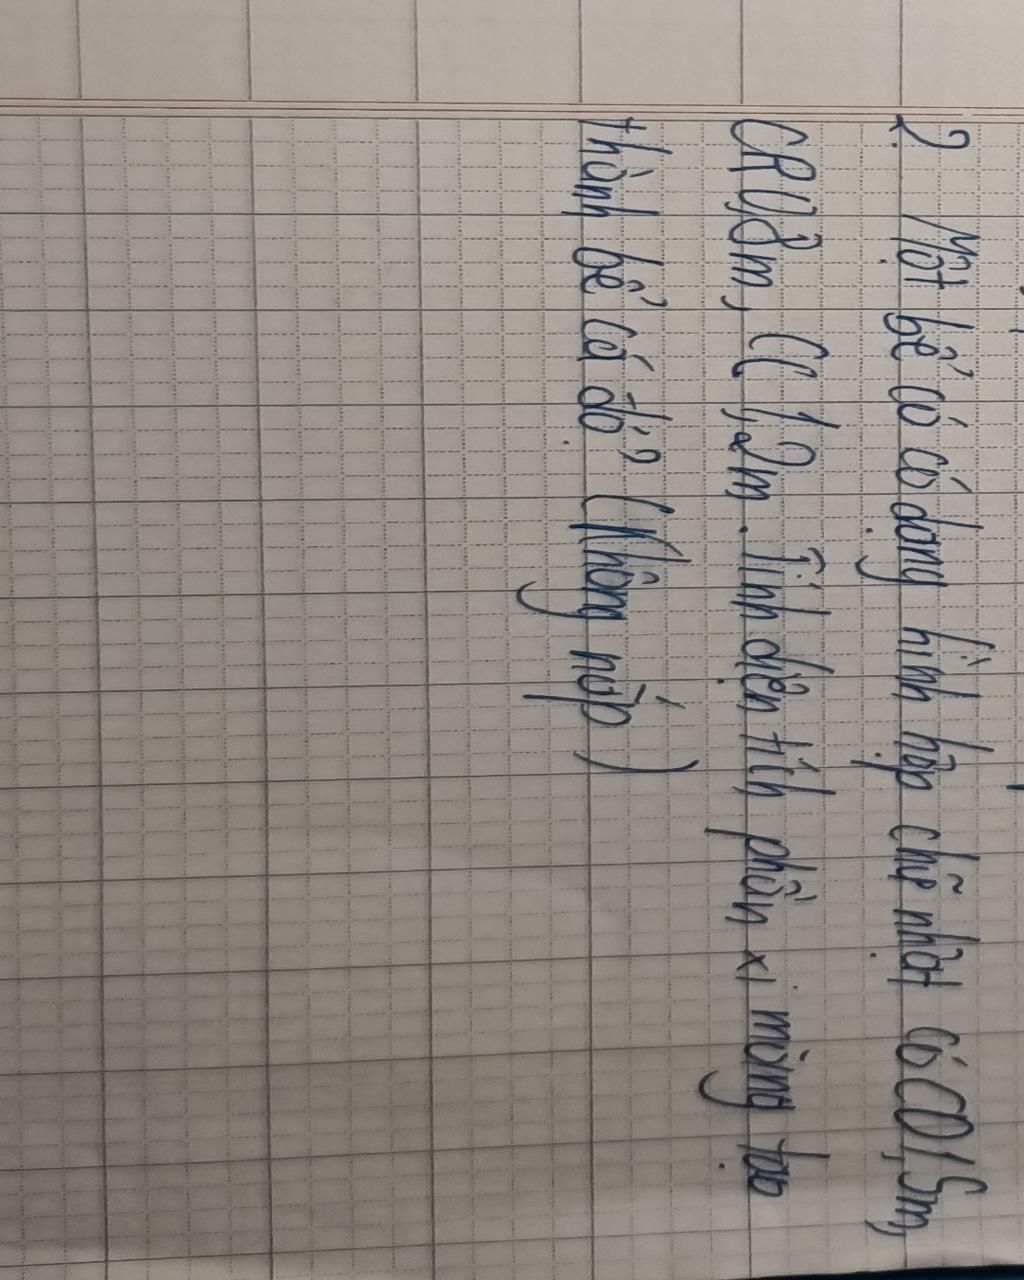 2. Một bể cá có dạng hình hộp chữ nhật có CD 1,5m,
CR 0,8m, CC 1,2m. Tính diện tích phần xi măng tạo
thành bể cá đó? (Không nắp)